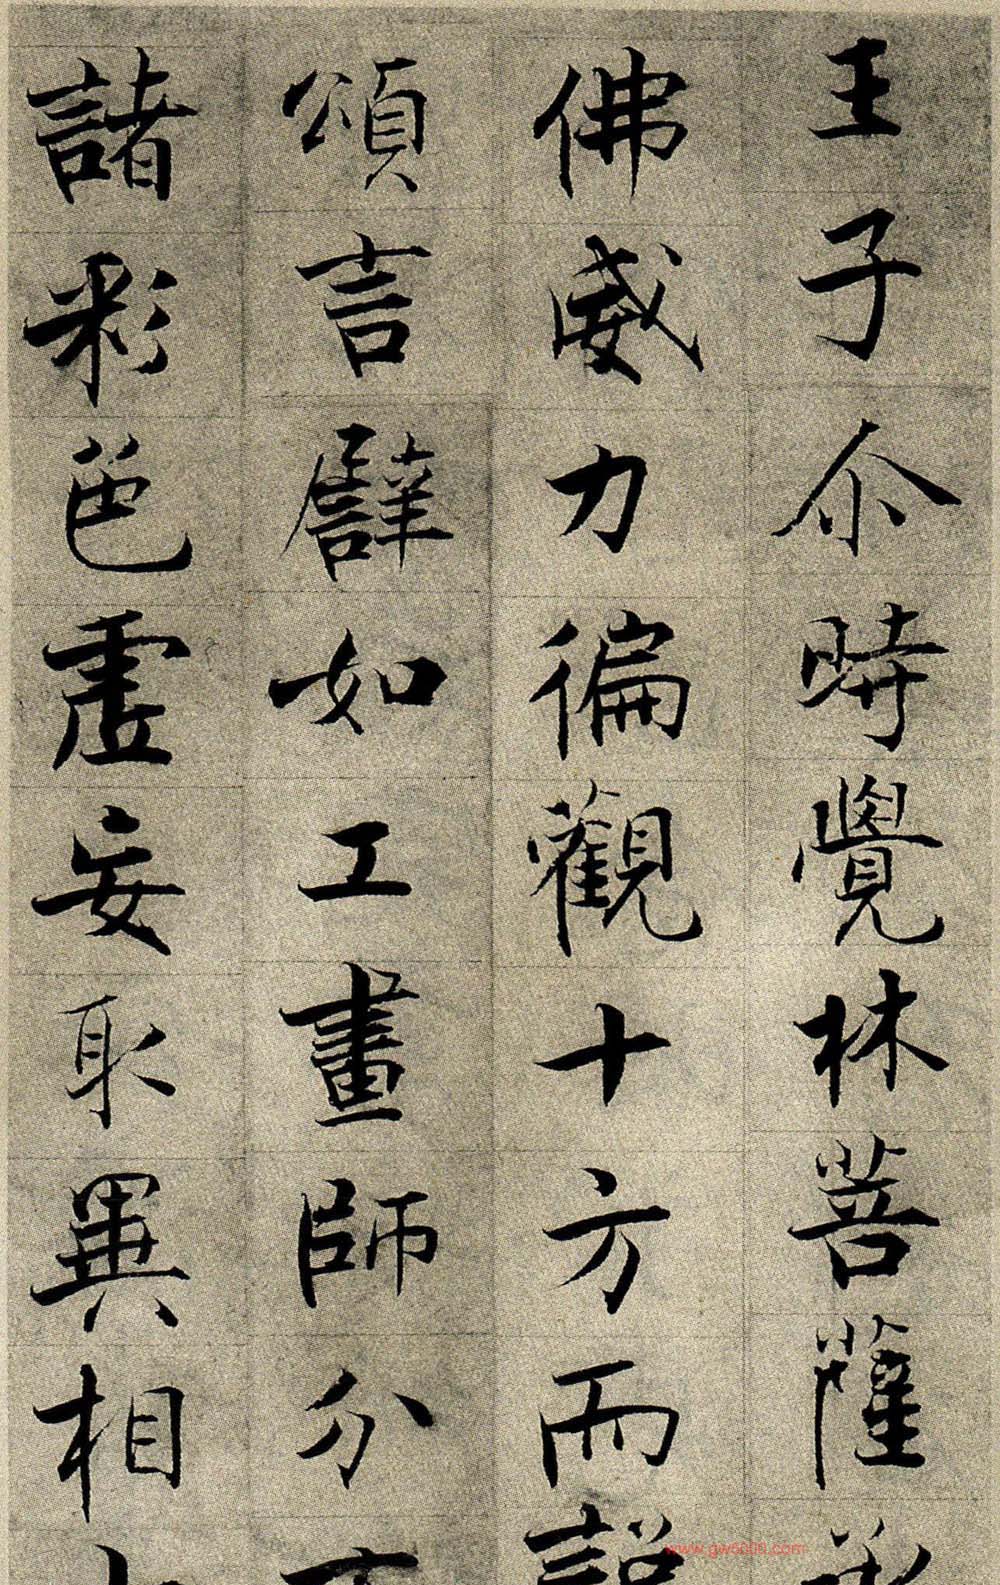 王子尒時覺林菩薩承
佛威力徧觀十方而說
頌言譬如工畫師分布
諸彩色虛妄取異相
www.gw5000.com